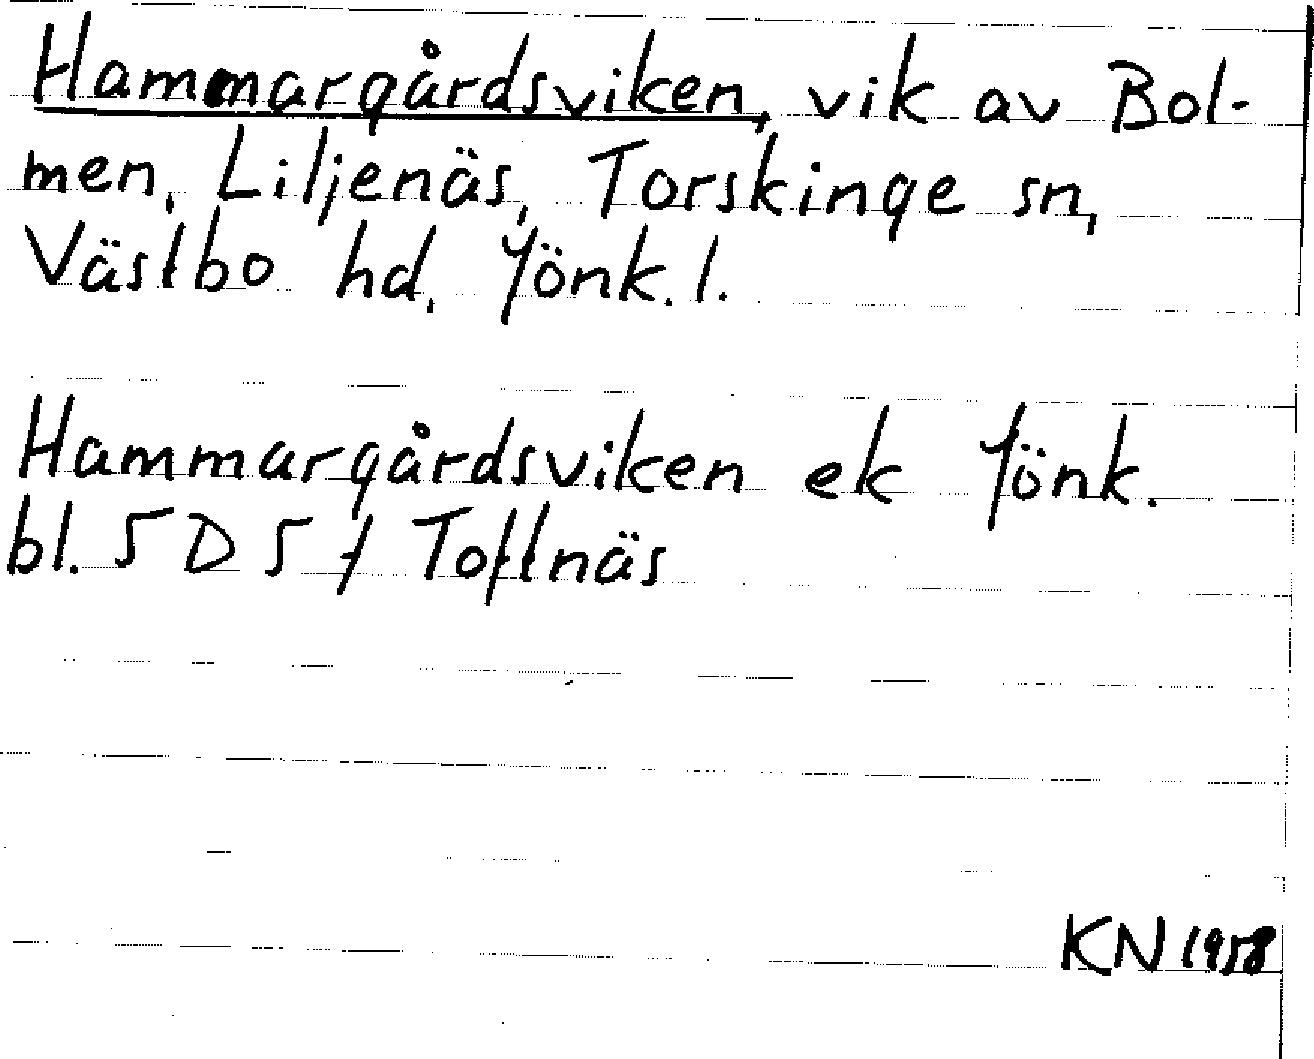 Hammargårdsviken, vik av Bol-
men, Liljenäs, Torskinge sn,
Västbo hd, Jönk. l.
Hammargårdsviken ek Jönk.
bl. 5 D 5 f Toftnäs
KN 1958